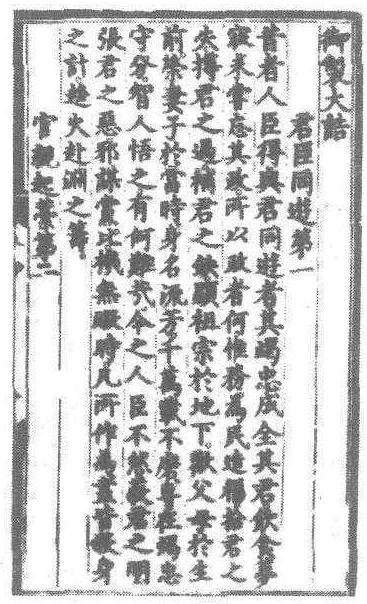 御製大誥
君臣同遊第一
昔者人臣得與君同遊者其竭忠成全其君飲食夢
寐未嘗忘其政所以政者何惟務為民造福拾君之
失撙君之過補君之缺顯祖宗於地下歡父母於生
前榮妻子於當時身名流芳千萬載不磨專在竭忠
守分智人悟之有何難哉今之人臣不然蔽君之明
張君之惡邪謀黨比幾無暇時凡所作為盡皆殺身
之計趨火赴淵之籌
官親起藁第二